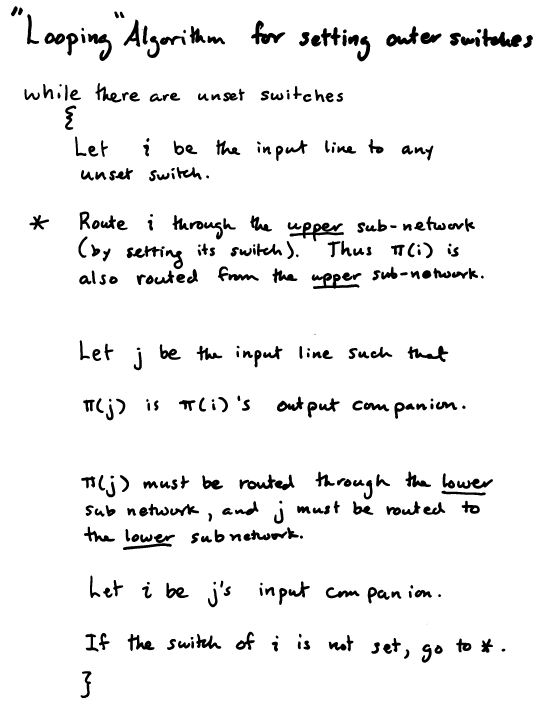 "Looping" Algorithm for setting outer switches
while there are unset switches
{
Let i be the input line to any
unset switch.
* Route i through the upper sub-network
(by setting its switch). Thus π(i) is
also routed from the upper sub-network.
Let j be the input line such that
π(j) is π(i)'s output companion.
π(j) must be routed through the lower
sub network, and j must be routed to
the lower subnetwork.
Let i be j's input companion.
If the switch of i is not set, go to *.
}